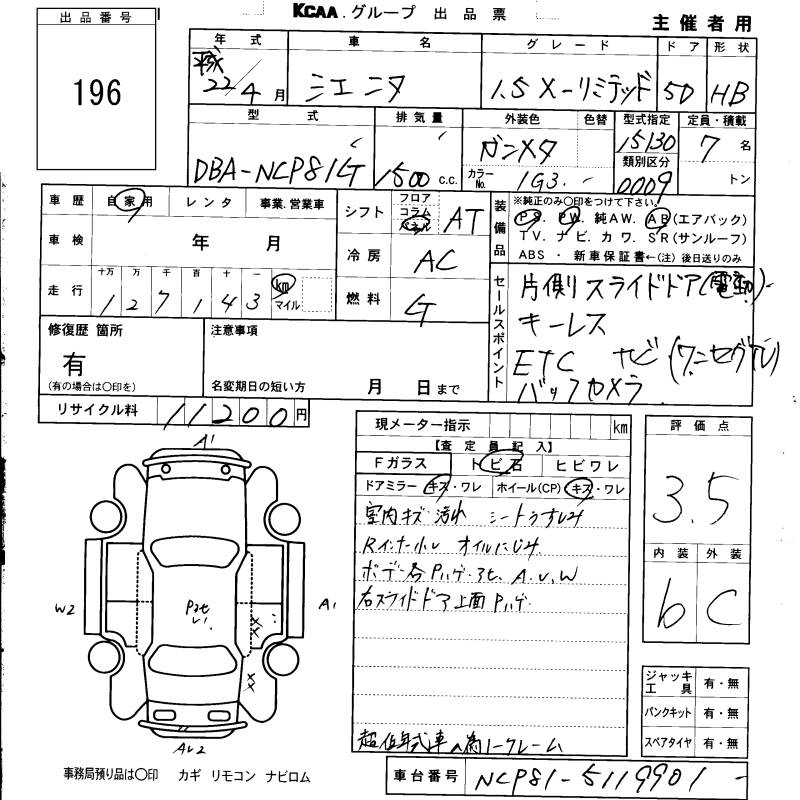 出品番号
196
KCAA.グループ 出品票
主催者用
年式 車名 グレード ドア 形状
平成22/4月 シエンタ 1.5 X-リミテッド 5D HB
型式 排気量 外装色 色替 型式指定 定員・積載
DBA-NCP81G 1500 c.c. ガンメタ 15130 7 名
カラーNo. 1G3 類別区分 0009 トン
車歴 自家用 レンタ 事業.営業車
車検 年 月
走行 十万 万 千 百 十 一 km マイル
127143
シフト フロア コラム パネル AT
冷房 AC
燃料 G
装備品
※純正のみ○印をつけて下さい。
PS. PW. 純AW. AB(エアバック)
TV. ナビ. カワ. SR(サンルーフ)
ABS ・ 新車保証書←(注)後日送りのみ
セールスポイント
片側スライドドア(電動)
キーレス
ETC ナビ(ワンセグTV)
バックカメラ
修復歴 箇所
有
(有の場合は○印を)
注意事項
名変期日の短い方 月 日まで
リサイクル料 11200円
現メーター指示 km
【査定員記入】
Fガラス トビ石 ヒビワレ
ドアミラー キズ・ワレ ホイール(CP) キズ・ワレ
室内キズ 汚れ シートうすしみ
Rインナー小レ オイルにじみ
ボデー各Pハゲ・アセ、A.U.W
右スライドドア上面Pハゲ
超低年式車の為ノークレーム
評価点
3.5
内装 外装
b C
ジャッキ工具 有・無
パンクキット 有・無
スペアタイヤ 有・無
A1
W2
A1
AU2
事務局預り品は○印 カギ リモコン ナビロム
車台番号 NCP81-5119901